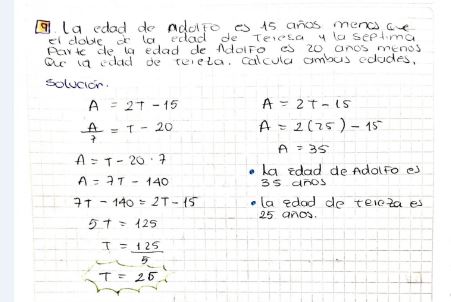 9 La edad de Adolfo es 15 años menos que
el doble de la edad de Teresa y la septima
Parte de la edad de Adolfo es 20 años menos
Que la edad de tereza. Calcula ambas edades.
Solución.
A = 2T - 15
A/7 = T - 20
A = T - 20 · 7
A = 7T - 140
7T - 140 = 2T - 15
5T = 125
T = 125/5
T = 25
A = 2T - 15
A = 2(25) - 15
A = 35
• La edad de Adolfo es
35 años
• la edad de tereza es
25 años.